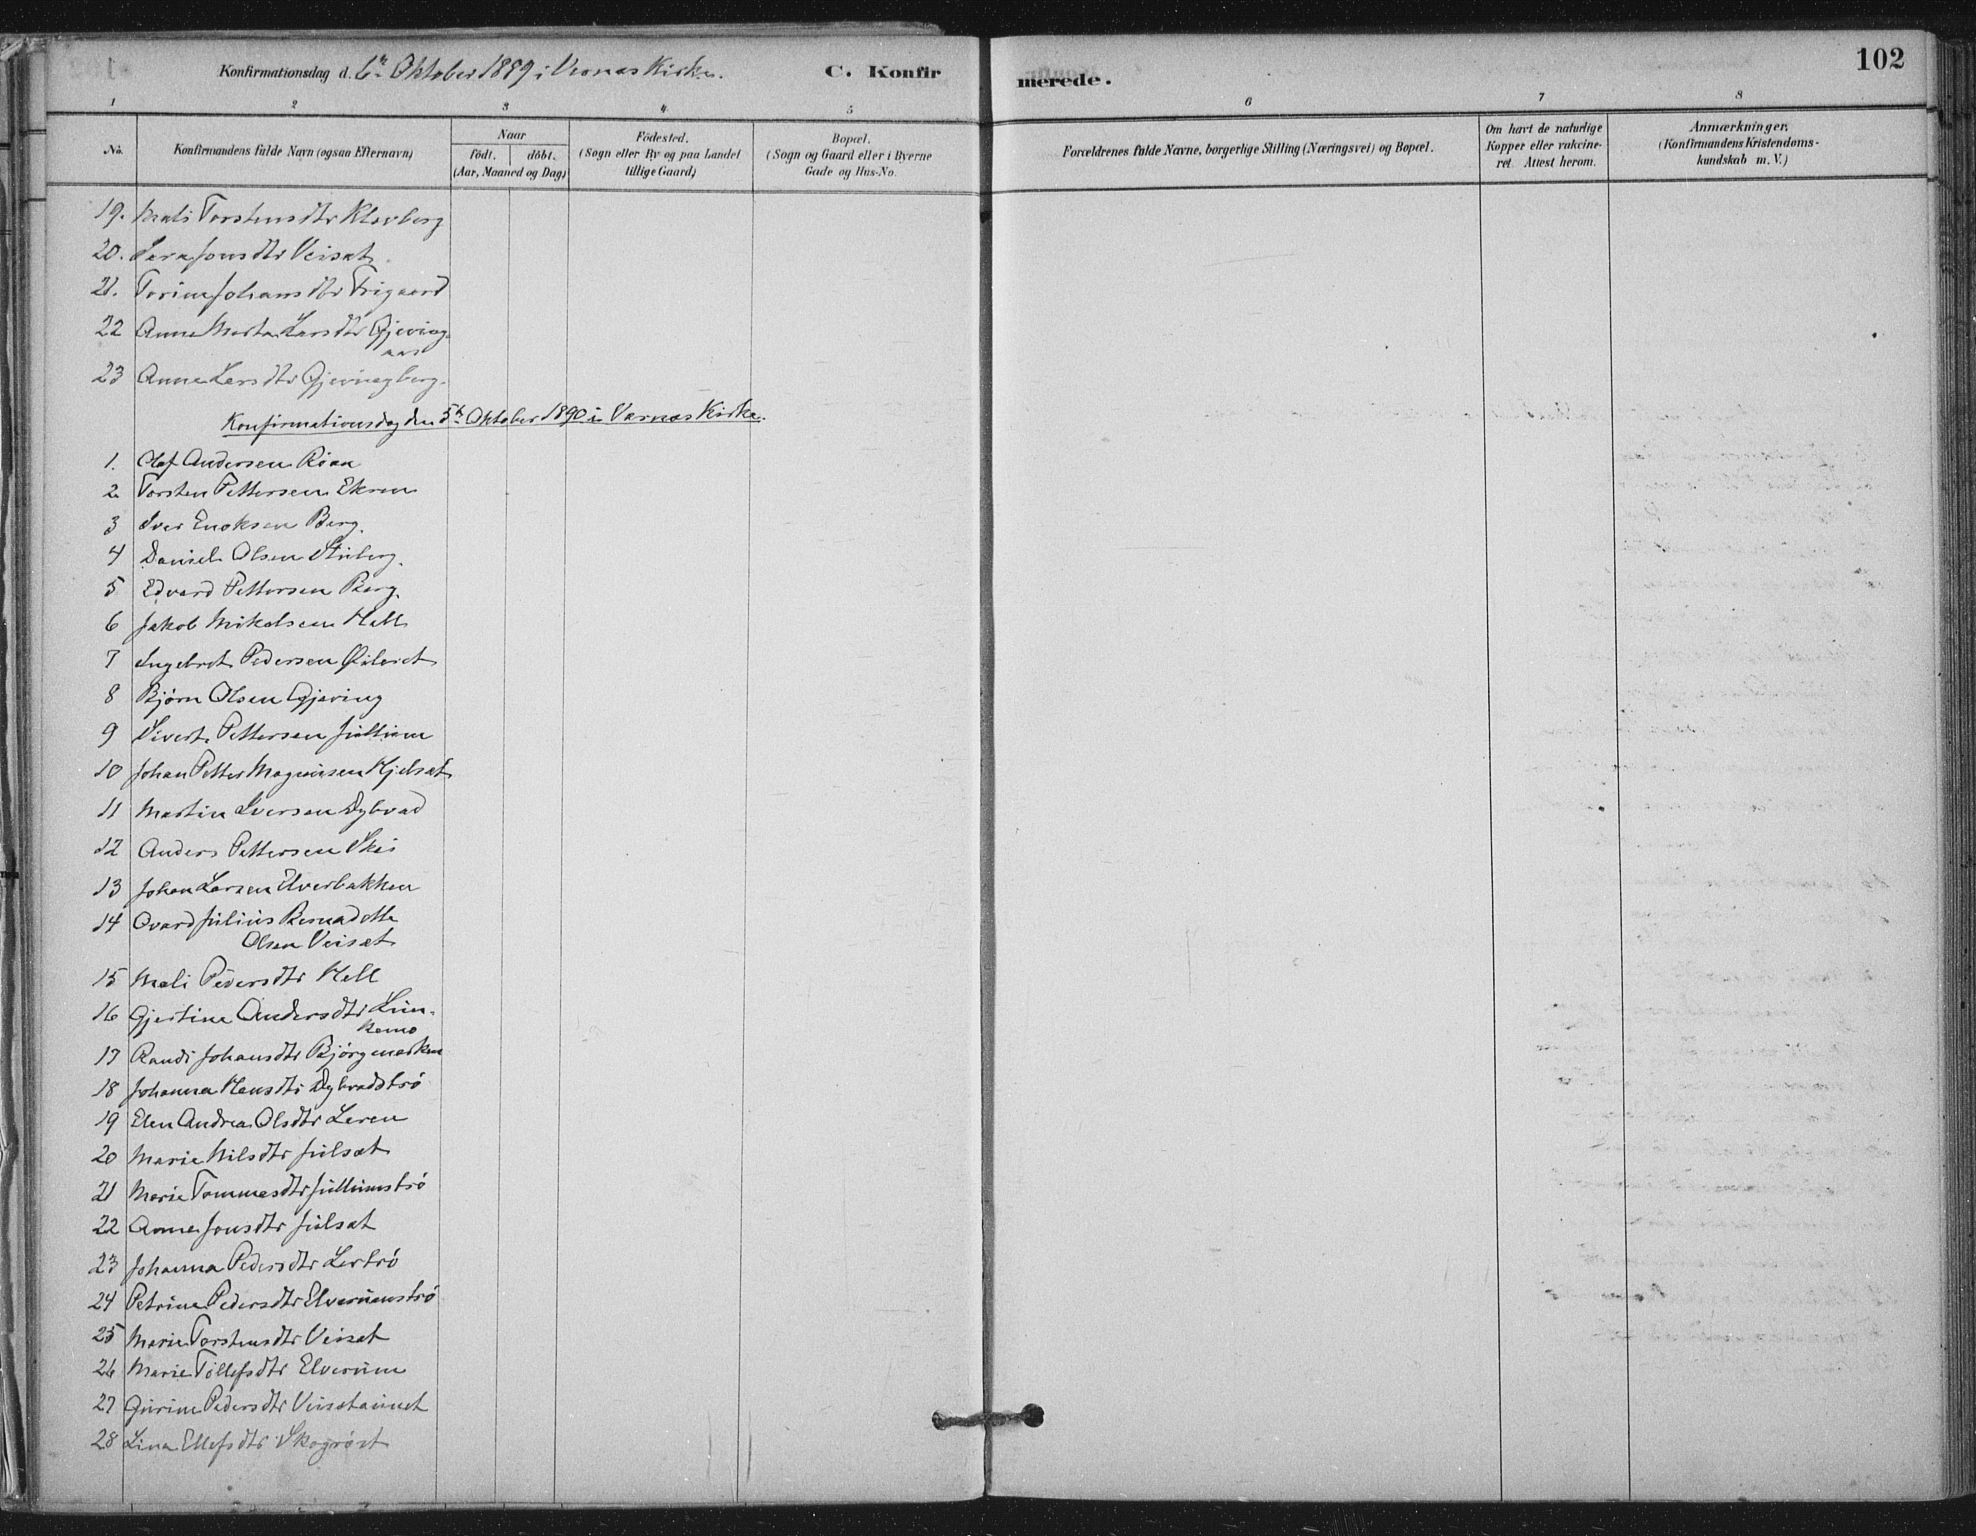 Konfirmationsdag d. 6te Oktober 1889 i Vernæs Kirke.
C. Konfirmerede.
102
1 2 3 4 5 6 7 8
No.
Konfirmandens fulde Navn (ogsaa Efternavn)
Naar
födt. döbt.
(Aar, Maaned og Dag)
Födested.
(Sogn eller By og paa Landet
tillige Gaard)
Bopæl.
(Sogn og Gaard eller i Byerne
Gade og Hus-No.
Forældrenes fulde Navne, borgerlige Stilling (Næringsvei) og Bopæl.
Om havt de naturlige
Kopper eller vakcine-
ret. Attest herom.
Anmærkninger.
(Konfirmandens Kristendoms-
kundskab m. V.)
19. Mali Torstensdtr Klevberg
20. Sara Jonsdtr Veisæt
21. Torine Johansdtr Frigaard
22 Anne Marta Larsdtr Gjeving-
aas
23 Anne Larsdtr Gjevingberg.
Konfirmationsdag den 5te Oktober 1890 i Værnæs Kirke.
1. Olaf Andersen Röan
2 Torsten Pettersen Ekren
3 Iver Enoksen Berg.
4 Daniel Olsen Stuberg.
5 Edvard Pettersen Berg.
6 Jakob Mikalsen Hell
7 Ingebret Pedersen
8 Bjørn Olsen Gjeving
9 Sivert Pettersen Jullum
10 Johan Petter Magnusen Hjelsæt
11 Martin Iversen Dybvad
12 Anders Pettersen Skei
13 Johan Larsen Elverbakken
14 Ovard Julius Bernadotte
Olsen Veisæt
15 Mali Pedersdtr Hell
16 Gjertine Andersdtr Lun-
kemo
17 Randi Johansdtr Bjørgmarken
18 Johanna Hansdtr Dybvadströ
19 Elen Andrea Olsdtr Leren
20 Marie Nilsdtr Julsæt
21 Marie Tommesdtr Jullumströ
22 Anne Jonsdtr Julsæt
23 Johanna Pedersdtr Lertrö
24 Petrine Pedersdtr Elverumströ
25 Marie Torstensdtr Veisæt
26 Marie Tollefsdtr Elverum
27 Gurine Pedersdtr Veisætaunet
28 Lina Ellefsdtr Skogröst